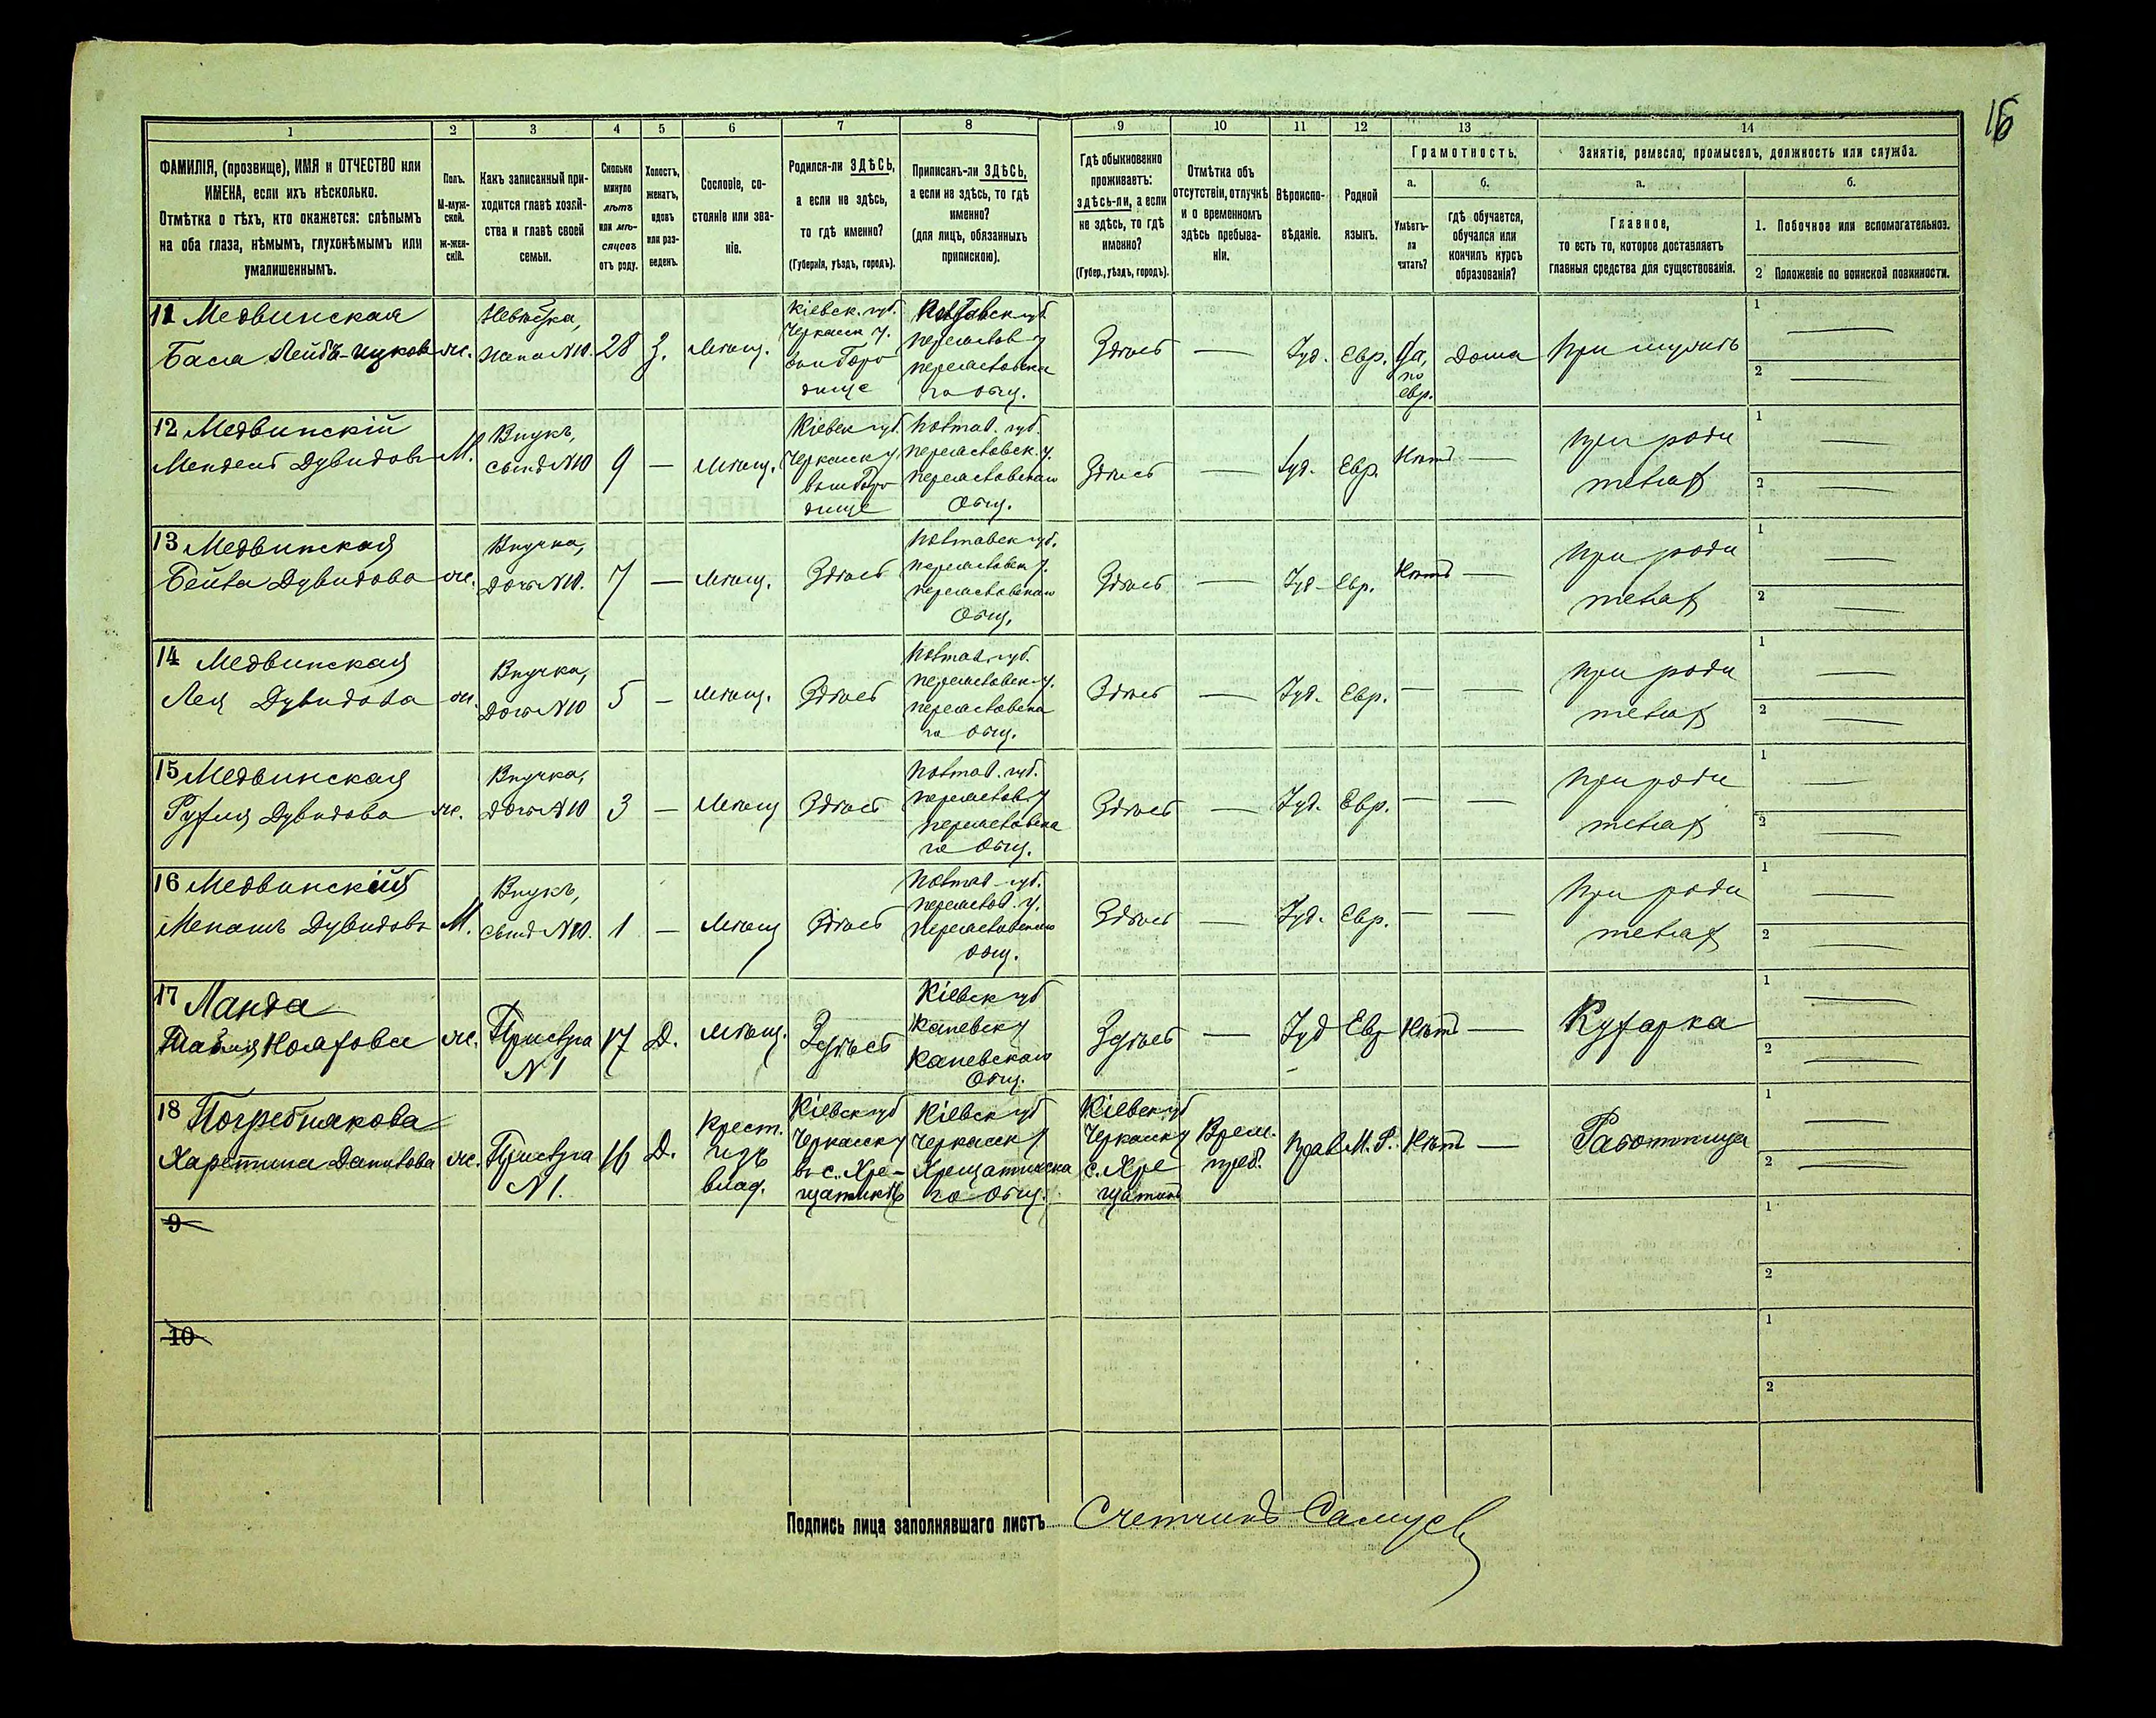 16
1 2 3 4 5 6 7 8 9 10 11 12 13 14
ФАМИЛІЯ, (прозвище), ИМЯ и ОТЧЕСТВО или
ИМЕНА, если ихъ нѣсколько.
Отмѣтка о тѣхъ, кто окажется: слѣпымъ
на оба глаза, нѣмымъ, глухонѣмымъ или
умалишеннымъ.
Полъ.
М-муж-
ской.
Ж-жен-
скій.
Какъ записанный при-
ходится главѣ хозяй-
ства и главѣ своей
семьи.
Сколько
минуло
лѣтъ
или мѣ-
сяцевъ
отъ роду.
Холостъ,
женатъ,
вдовъ
или раз-
веденъ.
Сословіе, со-
стояніе или зва-
ніе.
Родился-ли ЗДѢСЬ,
а если не здѣсь,
то гдѣ именно?
(Губернія, уѣздъ, городъ).
Приписанъ-ли ЗДѢСЬ,
а если не здѣсь, то гдѣ
именно?
(для лицъ, обязанныхъ
припискою).
Гдѣ обыкновенно
проживаетъ:
здѣсь-ли, а если
не здѣсь, то гдѣ
именно?
(Губер., уѣздъ, городъ).
Отмѣтка объ
отсутствіи, отлучкѣ
и о временномъ
здѣсь пребыва-
ніи.
Вѣроиспо-
вѣданіе.
Родной
языкъ.
Грамотность.
а.
Умѣетъ-
ли
читать?
б.
гдѣ обучается,
обучался или
кончилъ курсъ
образованія?
Занятіе, ремесло, промыселъ, должность или служба.
а.
Главное,
то есть то, которое доставляетъ
главныя средства для существованія.
б.
1. Побочное или вспомогательное.
2 Положеніе по воинской повинности.
11 Медвинская
Бася Лейбъ-Ицкова
ж.
Невѣстка,
жена N10.
28
З.
Мѣщ.
Кіевск. губ.
Черкасск у.
Городище
Полтавск губ
Переяслав у
Переяславска
го общ.
Здѣсь
—
Іуд.
Евр.
Да,
по
евр.
Дома
При мужѣ
1 —
2 —
12 Медвинскій
Мендель Дувидовъ
М.
Внукъ,
сынъ N10
9
—
Мѣщ.
Кіевск губ.
Черкасск у
Городище
Полтав. губ.
Переяславск. у.
Переяславскаго
Общ.
Здѣсь
—
Іуд.
Евр.
Нѣтъ
—
При роди
теляхъ
1 —
2 —
13 Медвинская
Бейла Дувидова
ж.
Внучка,
дочь N10.
7
—
Мѣщ.
Здѣсь
Полтавск губ.
Переяславск у.
Переяславскаго
Общ.
Здѣсь
—
Іуд.
Евр.
Нѣтъ
—
При роди
теляхъ
1 —
2 —
14 Медвинская
Лея Дувидова
ж.
Внучка,
дочь N10
5
—
Мѣщ.
Здѣсь
Полтав. губ.
Переяславск у.
Переяславска
го общ.
Здѣсь
—
Іуд.
Евр.
—
—
При роди
теляхъ
1 —
2 —
15 Медвинская
Рухля Дувидова
ж.
Внучка,
дочь N10
3
—
Мѣщ
Здѣсь
Полтав. губ.
Переяслав у
Переяславска
го Общ.
Здѣсь
—
Іуд.
Евр.
—
—
При роди
теляхъ
1 —
2 —
16 Медвинскій
Менашъ Дувидовъ
М.
Внукъ,
сынъ N10.
1
—
Мѣщ
Здѣсь
Полтав губ.
Переяслав. у.
Переяславскаго
общ.
Здѣсь
—
Іуд.
Евр.
—
—
При роди
теляхъ
1 —
2 —
17 Ланда
ж.
Прислуга
N 1
17
Д.
Мѣщ.
Здѣсь
Кіевск губ
Каневск у
Каневскаго
Общ.
Здѣсь
—
Іуд
Евр
Нѣтъ
—
Кухарка
1 —
2 —
18 Погребнякова
Харетина Данилова
ж.
Прислуга
N 1.
16
Д.
Крест.
изъ
влад.
Кіевск губ
Черкасск у
въ с. Хре-
щатикѣ
Кіевск губ
Черкасск у
Хрещатинска
го общ.
Кіевск губ
Черкасск у
с. Хре
щатикъ
Врем.
преб.
Прав
М. Р.
Нѣтъ
—
Работница
1 —
2 —
9
1
2
10
1
2
Подпись лица заполнявшаго листъ Счетчикъ